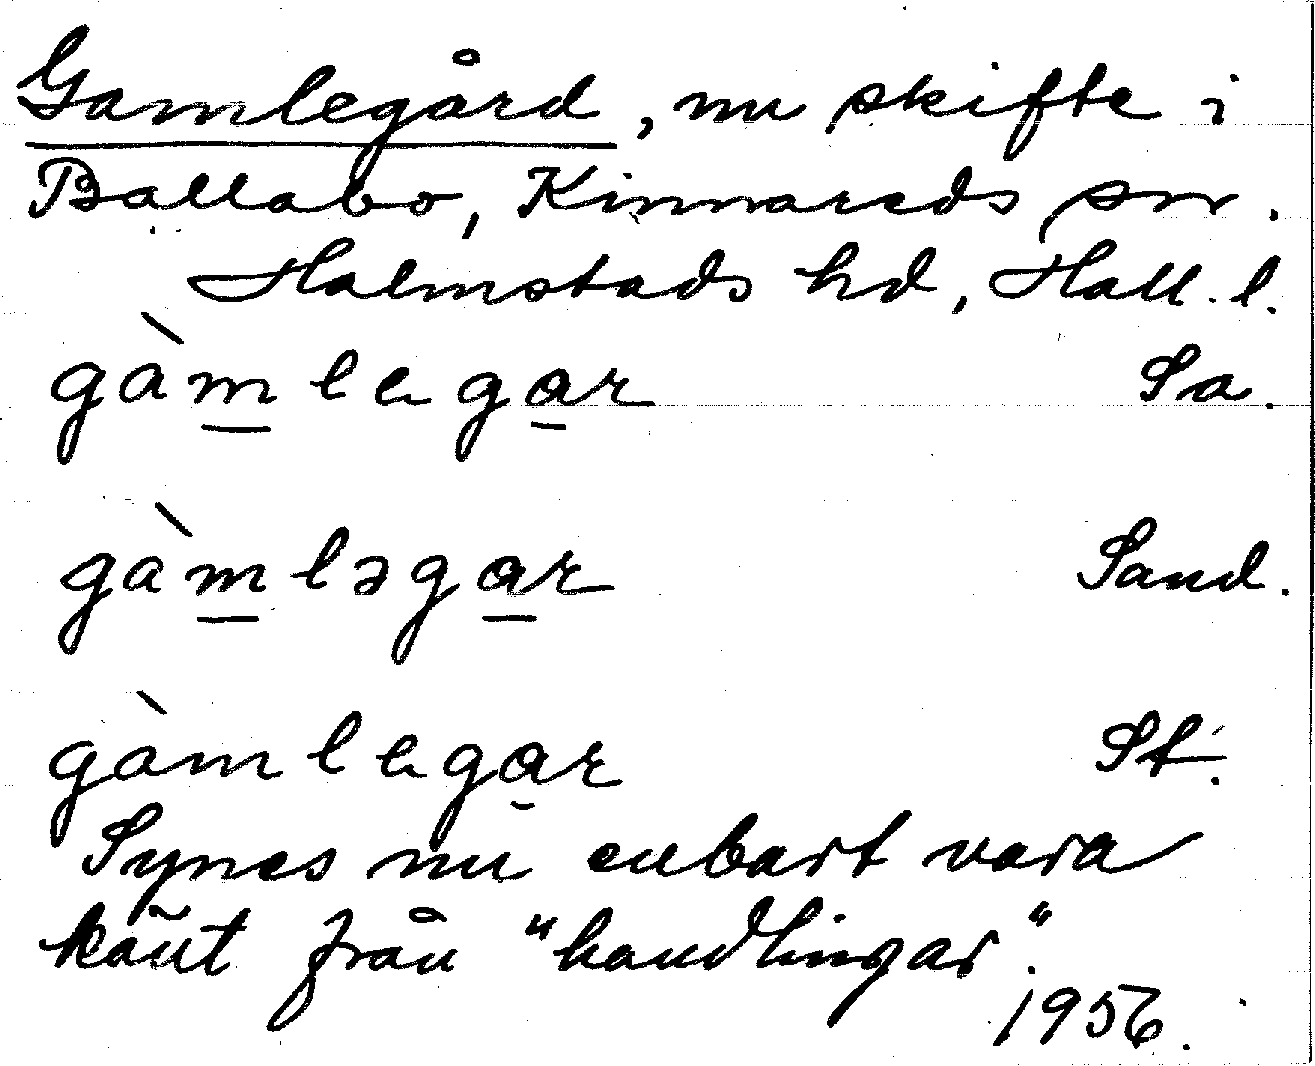 Gamlegård, nu skifte i
Ballabo, Kinnareds sn.
Halmstads hd, Hall. l.
gàm̲lega̲r Sa.
gàm̲ləga̲r Sand.
gàmlegar St.
Synes nu enbart vara
känt från "handlingar".
1956.